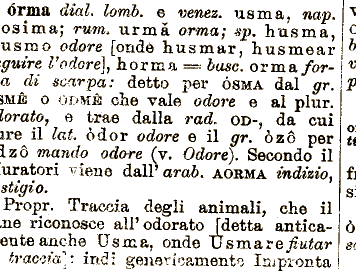 órma dial. lomb. e venez. usma, nap.
osima; rum. urmă orma; sp. husma,
usmo odore [onde husmar, husmear
guire l'odore], horma = basc. orma for-
a di scarpa: detto per ÓSMA dal gr.
SMÊ o ODMÊ che vale odore e al plur.
dorato, e trae dalla rad. OD-, da cui
ure il lat. òdor odore e il gr. òzô per
dzô mando odore (v. Odore). Secondo il
uratori viene dall' arab. AORMA indizio,
stigio.
Propr. Traccia degli animali, che il
ne riconosce all' odorato [detta antica-
ente anche Usma, onde Usmare fiutar
traccia]: indi genericamente Impronta